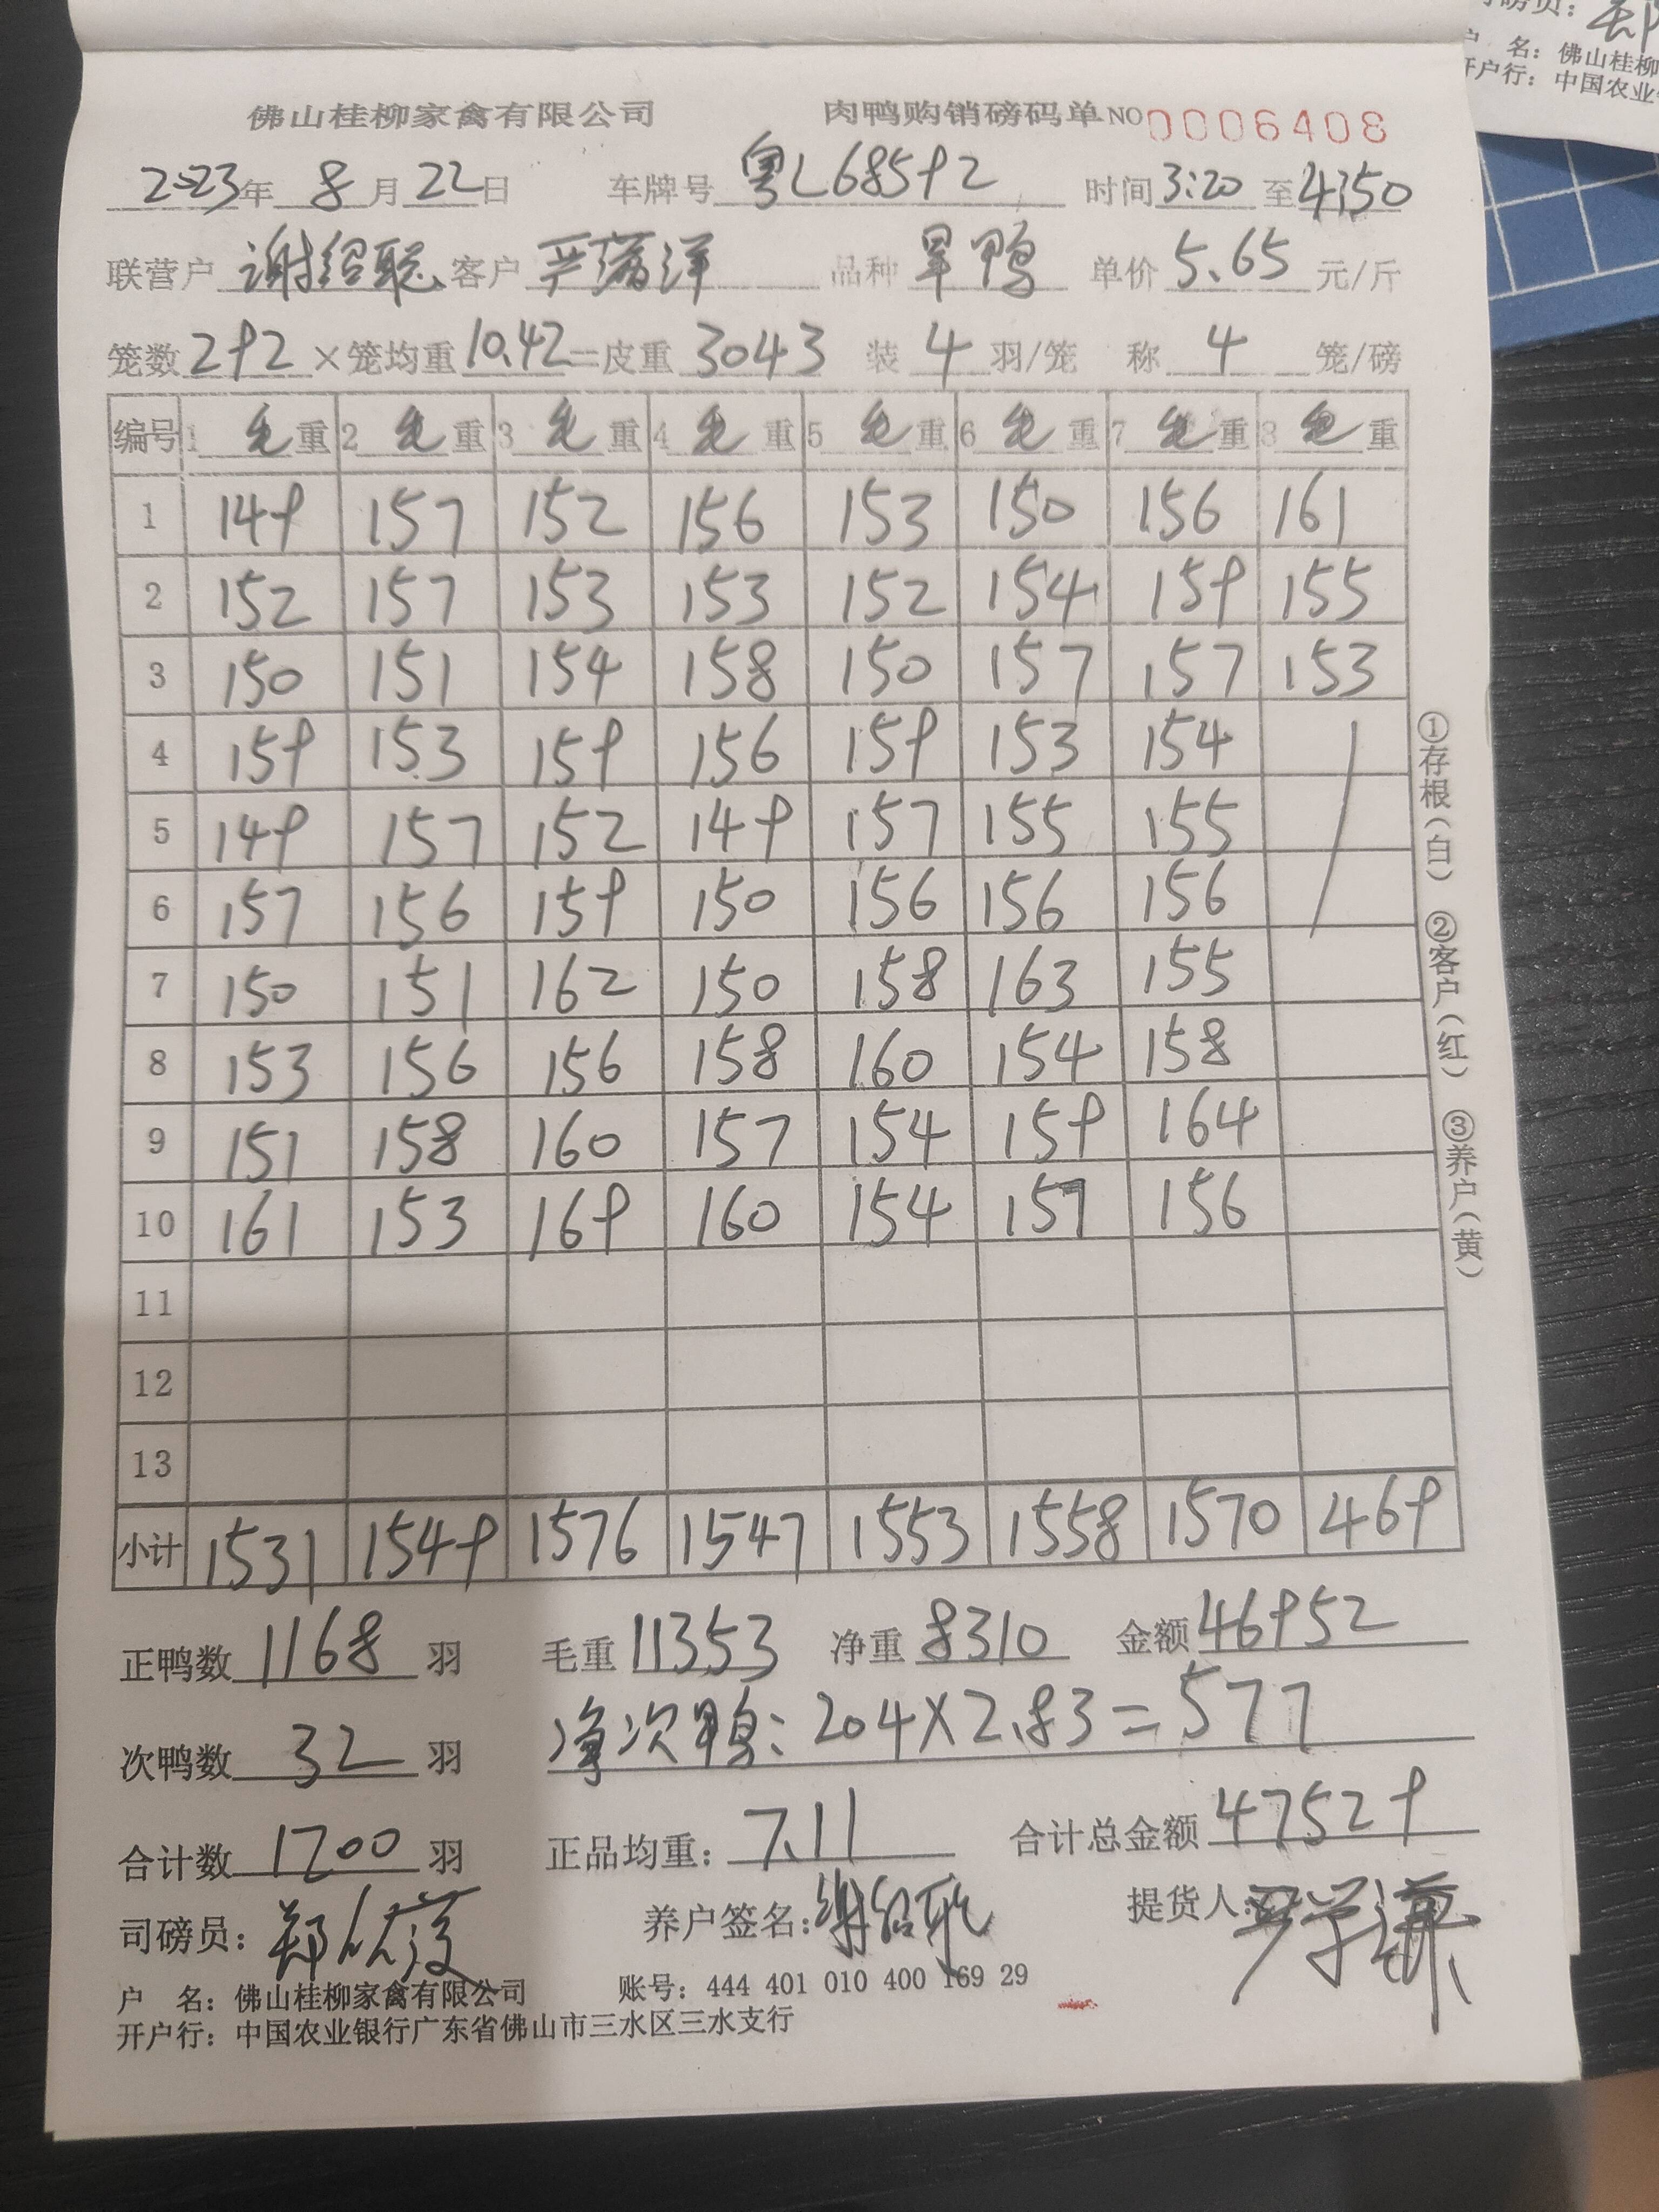 佛山桂柳家禽有限公司 肉鸭购销磅码单 NO 0006408
2023年 8月22日 车牌号 粤L68592 时间 3:20 至 4:50
联营户 谢绍聪 客户 严满洋 品种 旱鸭 单价 5.65 元/斤
笼数 292 ×笼均重 10.42 =皮重 3043 装 4 羽/笼 称 4 笼/磅
编号 1 毛重 2 毛重 3 毛重 4 毛重 5 毛重 6 毛重 7 毛重 8 毛重
1 149 157 152 156 153 150 156 161
2 152 157 153 153 152 154 159 155
3 150 151 154 158 150 157 157 153
4 159 153 159 156 159 153 154
5 149 157 152 149 157 155 155
6 157 156 159 150 156 156 156
7 150 151 162 150 158 163 155
8 153 156 156 158 160 154 158
9 151 158 160 157 154 159 164
10 161 153 169 160 154 157 156
11
12
13
小计 1531 1549 1576 1547 1553 1558 1570 469
正鸭数 1168 羽 毛重 11353 净重 8310 金额 46952
次鸭数 32 羽 净次鸭: 204×2.83=577
合计数 1200 羽 正品均重: 7.11 合计总金额 47529
司磅员: 郑 养户签名: 谢绍聪 提货人: 严学谦
户 名: 佛山桂柳家禽有限公司 账号: 444 401 010 400 169 29
开户行: 中国农业银行广东省佛山市三水区三水支行
①存根(白) ②客户(红) ③养户(黄)
司磅员: 郑
户 名: 佛山桂柳
开户行: 中国农业